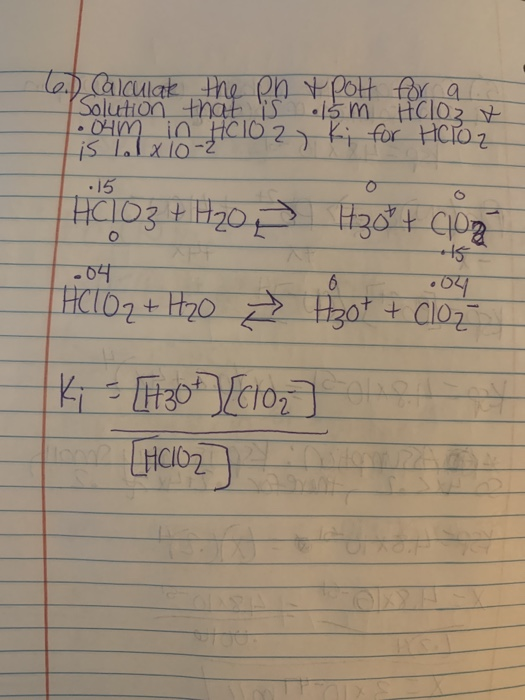 6.) Calculate the Ph & pOH for a
Solution that is .15m HClO3 &
.04m in HClO2, Ki for HClO2
is 1.1 x10-2
.15 0 0
HClO3 + H2O ⇌ H3O+ + ClO3-
0 .15
.04 0 .04
HClO2 + H2O ⇌ H3O+ + ClO2-
Ki = [H3O+][ClO2-]
[HClO2]